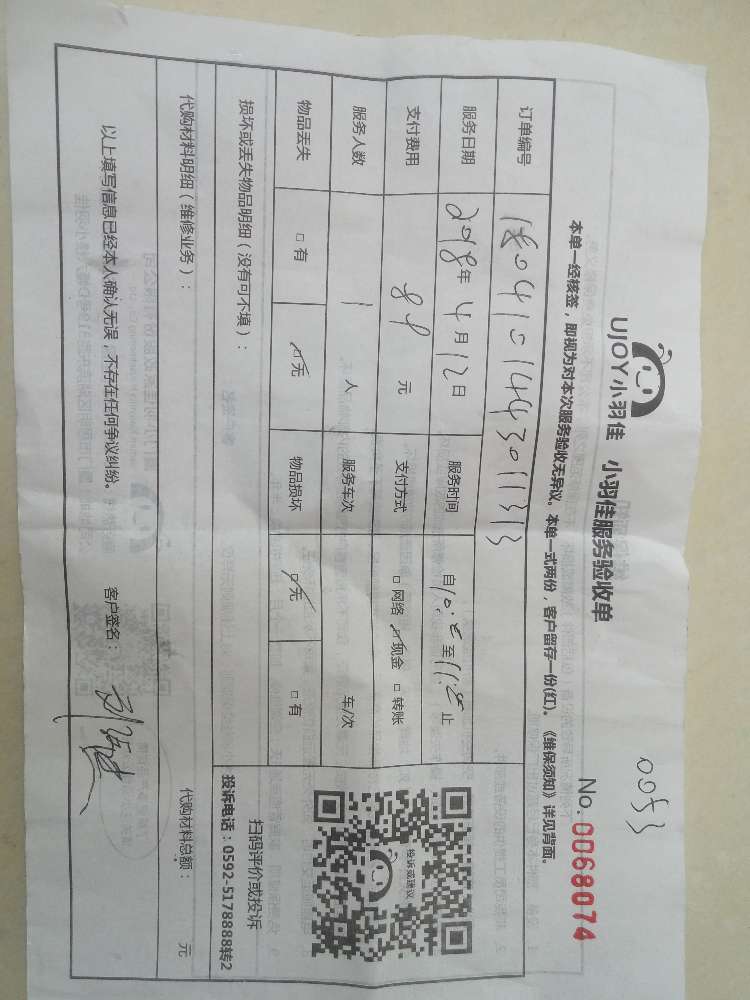 0053
UJOY小羽佳 小羽佳服务验收单
No.0068074
本单一经核签，即视为对本次服务验收无异议。本单一式两份，客户留存一份(红)。《维保须知》详见背面。
订单编号
服务日期 2018年4月12日 服务时间 自10:至11:止
支付费用 元 支付方式 □网络 ☑现金 □转账
服务人数 1人 服务车次 车/次
物品丢失 □有 ☑无 物品损坏 ☑无 □有
投诉或建议
损坏或丢失物品明细（没有可不填）：
扫码评价或投诉
投诉电话：0592-5178888转2
代购材料明细（维修业务）：
代购材料总额： 元
以上填写信息已经本人确认无误，不存在任何争议纠纷。 客户签名：